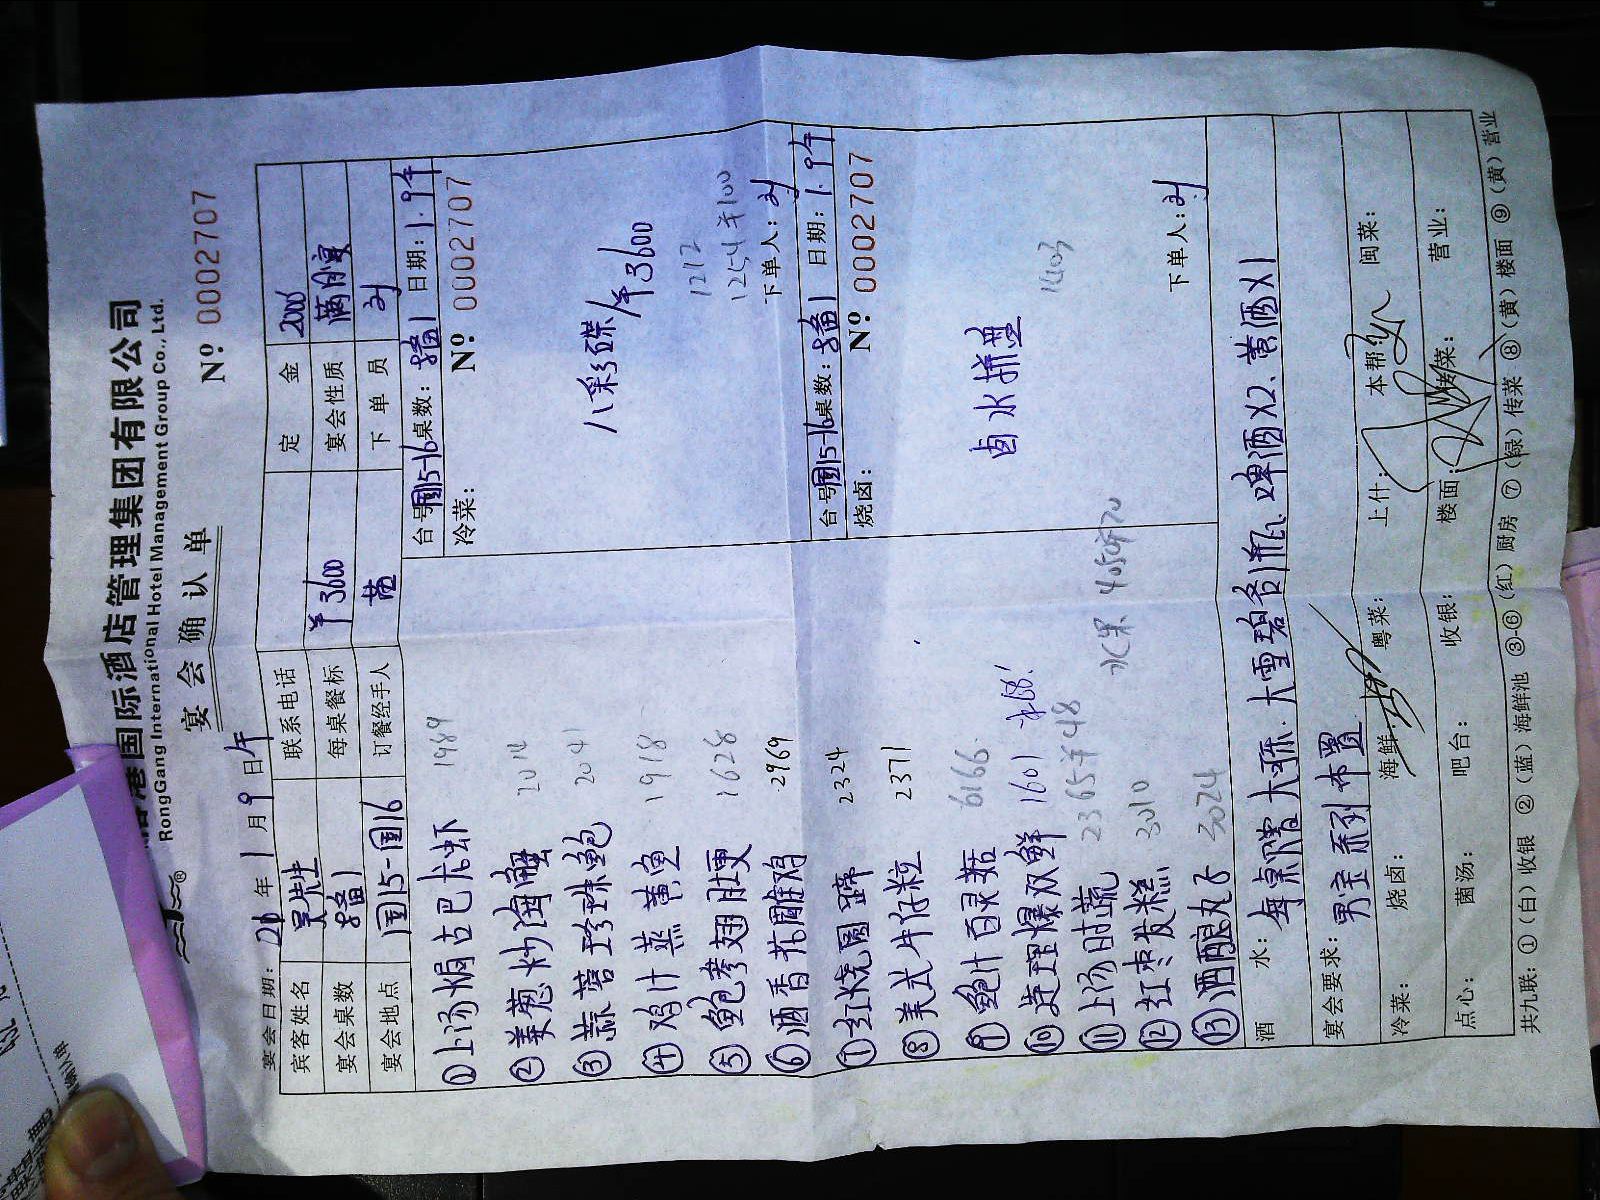 港国际酒店管理集团有限公司
RongGang International Hotel Management Group Co., Ltd.
宴会确认单
Nº 0002707
宴会日期: 年 1 月 9 日午
宾客姓名 吴先生 联系电话 定金 2000
宴会桌数 8备1 每桌餐标 ¥3600 宴会性质 满月宴
宴会地点 国15-国16 订餐经手人 下单员
台号: 国15-16 桌数: 8备1 日期: 1.9午
冷菜: Nº 0002707
八彩碟/¥3600
1212
1254 ¥100
下单人:
台号: 国15-16 桌数: 8备1 日期: 1.9午
烧卤: Nº 0002707
卤水拼盘
1403
下单人:
①上汤焗古巴大虾 1989
②姜葱炒海蟹 2014
③蒜蓉珍珠鲍 2041
④鸡汁蒸黄鱼 1918
⑤鲍参翅肚羹 1628
⑥酒香花雕鸡 2969
⑦红烧圆蹄 2324
⑧美式牛仔粒 2371
⑨鲍汁百灵菇 6166
⑩ 爆双鲜 1601 本帮!
⑪上汤时蔬 2365 ¥48
⑫红枣发糕 3010 水果 4050 ¥70
⑬酒酿丸子 3024
酒水: 每桌橙大瓶.大雪碧各1瓶、啤酒X2、黄酒X1
宴会要求: 男宝系列布置
冷菜: 烧卤: 海鲜: 粤菜: 上什: 本帮: 闽菜:
点心: 菌汤: 吧台: 收银: 楼面: 传菜: 营业:
共九联: ①(白)收银 ②(蓝)海鲜池 ③-⑥(红)厨房 ⑦(绿)传菜 ⑧(黄)楼面 ⑨(黄)营业